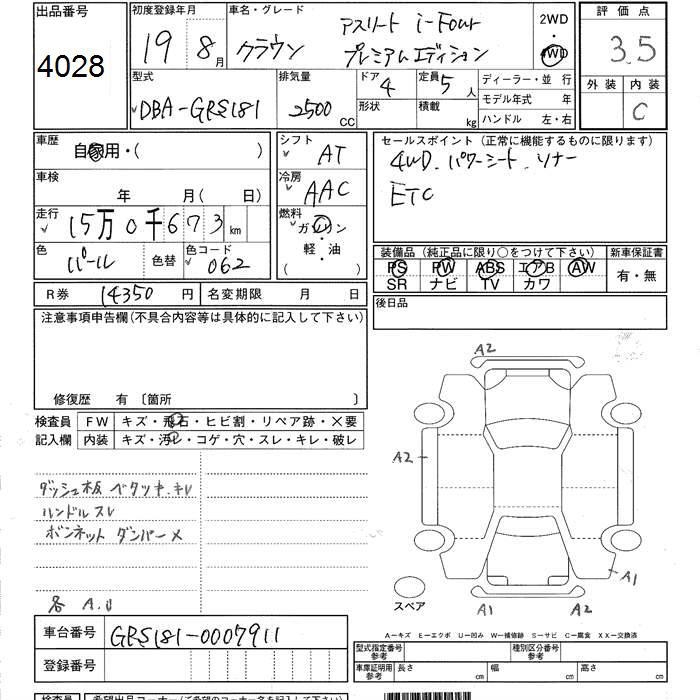 出品番号
4028
初度登録年月
19 8月
車名・グレード
クラウン
アスリート i-Four
プレミアムエディション
2WD
・
4WD
評価点
3.5
外装 内装
C
型式
DBA-GRS181
排気量
2500 CC
ドア 4
形状
定員 5 人
積載 kg
ディーラー・並行
モデル年式 年
ハンドル 左・右
車歴
自家用・( )
車検
年 月( 日)
走行
15万0千673 km
色
パール
色替
色コード
062
シフト
AT
冷房
AAC
燃料
ガソリン
・
軽・油
( )
セールスポイント (正常に機能するものに限ります)
4WD. パワーシート. ソナー
ETC
装備品 (純正品に限り○をつけて下さい) 新車保証書
PS PW ABS エアB AW
SR ナビ TV カワ
有・無
R券 14350 円 名変期限 月 日
後日品
注意事項申告欄(不具合内容等は具体的に記入して下さい)
修復歴 有 〔箇所 〕
検査員
記入欄
FW キズ・飛石・ヒビ割・リペア跡・×要
内装 キズ・汚レ・コゲ・穴・スレ・キレ・破レ
ダッシュ板 ベタツキ. キレ
ハンドル スレ
ボンネット ダンパー ×
各 A.U
A2
A2
A1
A1
A2
スペア
車台番号 GRS181-0007911
登録番号
A-キズ E-エクボ U-凹み W-補修跡 S-サビ C-腐食 XX-交換済
型式指定番号
参考
種別区分番号
参考
車庫証明用
参考
長さ cm 幅 cm 高さ cm
検査員